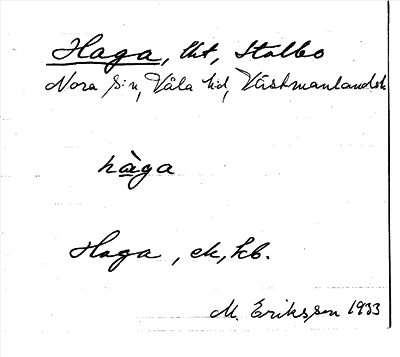 Haga, tht, Stalbo
Nora s:n, Våla hd, Västmanlands
hàga
Haga, ek, kb.
M Eriksson 1933